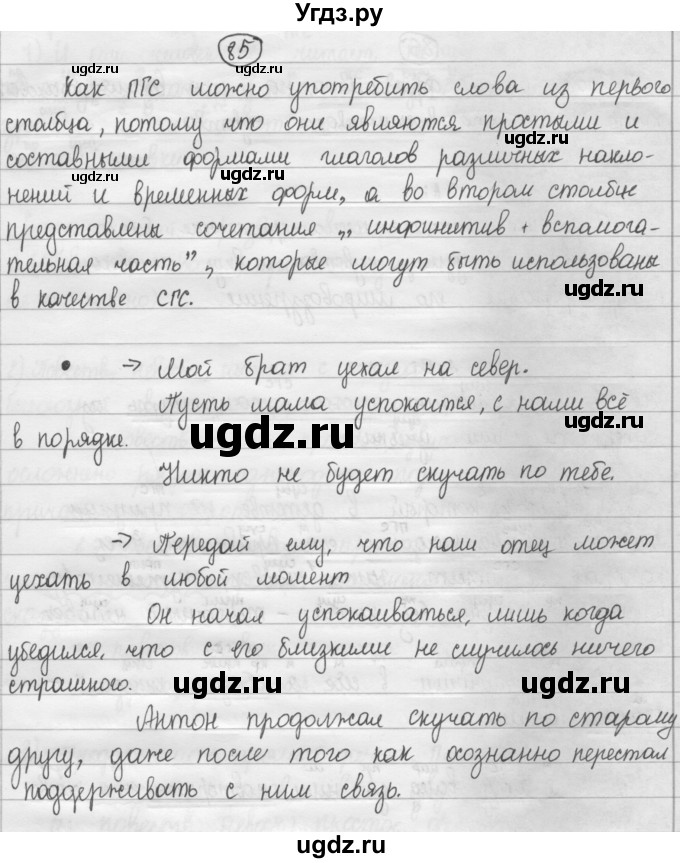 Угдз.ру
85
Как ПГС можно употребить слова из первого
столбца, потому что они являются простыми и
составными формами глаголов различных накло-
нений и временных форм, а во втором столбце
представлены сочетания „инфинитив + вспомога-
тельная часть”, которые могут быть использованы
в качестве СГС.
• → Мой брат уехал на север.
Пусть мама успокоится, с нами всё
в порядке.
Никто не будет скучать по тебе.
→ Передай ему, что наш отец может
уехать в любой момент
Он начал успокаиваться, лишь когда
убедился, что с его близкими не случилось ничего
страшного.
Антон продолжал скучать по старому
другу, даже после того как осознанно перестал
поддерживать с ним связь.
ugdz.ru
ugdz.ru
ugdz.ru
ugdz.ru
ugdz.ru
ugdz.ru
ugdz.ru
ugdz.ru
ugdz.ru
ugdz.ru
ugdz.ru
ugdz.ru
ugdz.ru
ugdz.ru